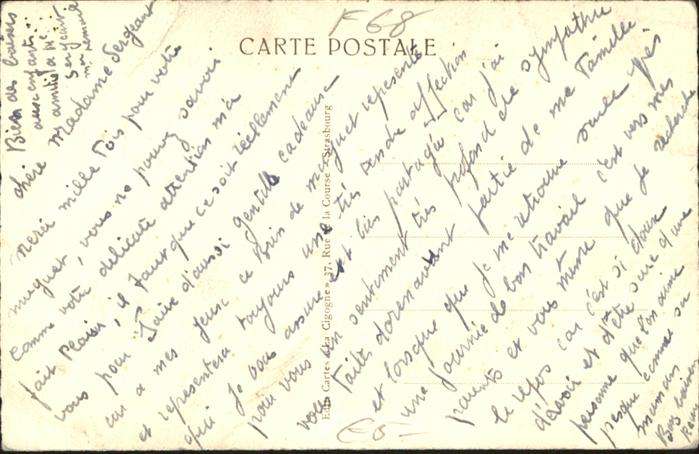 F 68
CARTE POSTALE
Edit Cartes « La Cigogne » 37, Rue de la Course - Strasbourg
Chère Madame Sergeant
merci mille fois pour votre
muguet, vous ne pouvez savoir
comme votre délicate attention m'a
fait plaisir, il faut que ce soit réellement
vous pour faire d'aussi gentils cadeaux
car a mes yeux ce brin de muguet représente
et représentera toujours une très tendre affection
qui je vous assure est bien partagée car j'ai
pour vous un sentiment très profond de sympathie
vous faites dorénavant partie de ma famille
et lorsque que je me retrouve seule après
une journée de bon travail c'est vers mes
parents et vous même que je recherche
le repos car c'est si doux
d'avoir et d'être sure d'une
personne que l'on aime
presque comme sa
maman
Bons baisers
Bien des baisers
aux enfants
amitiés a Mr
Sergeant
E5-